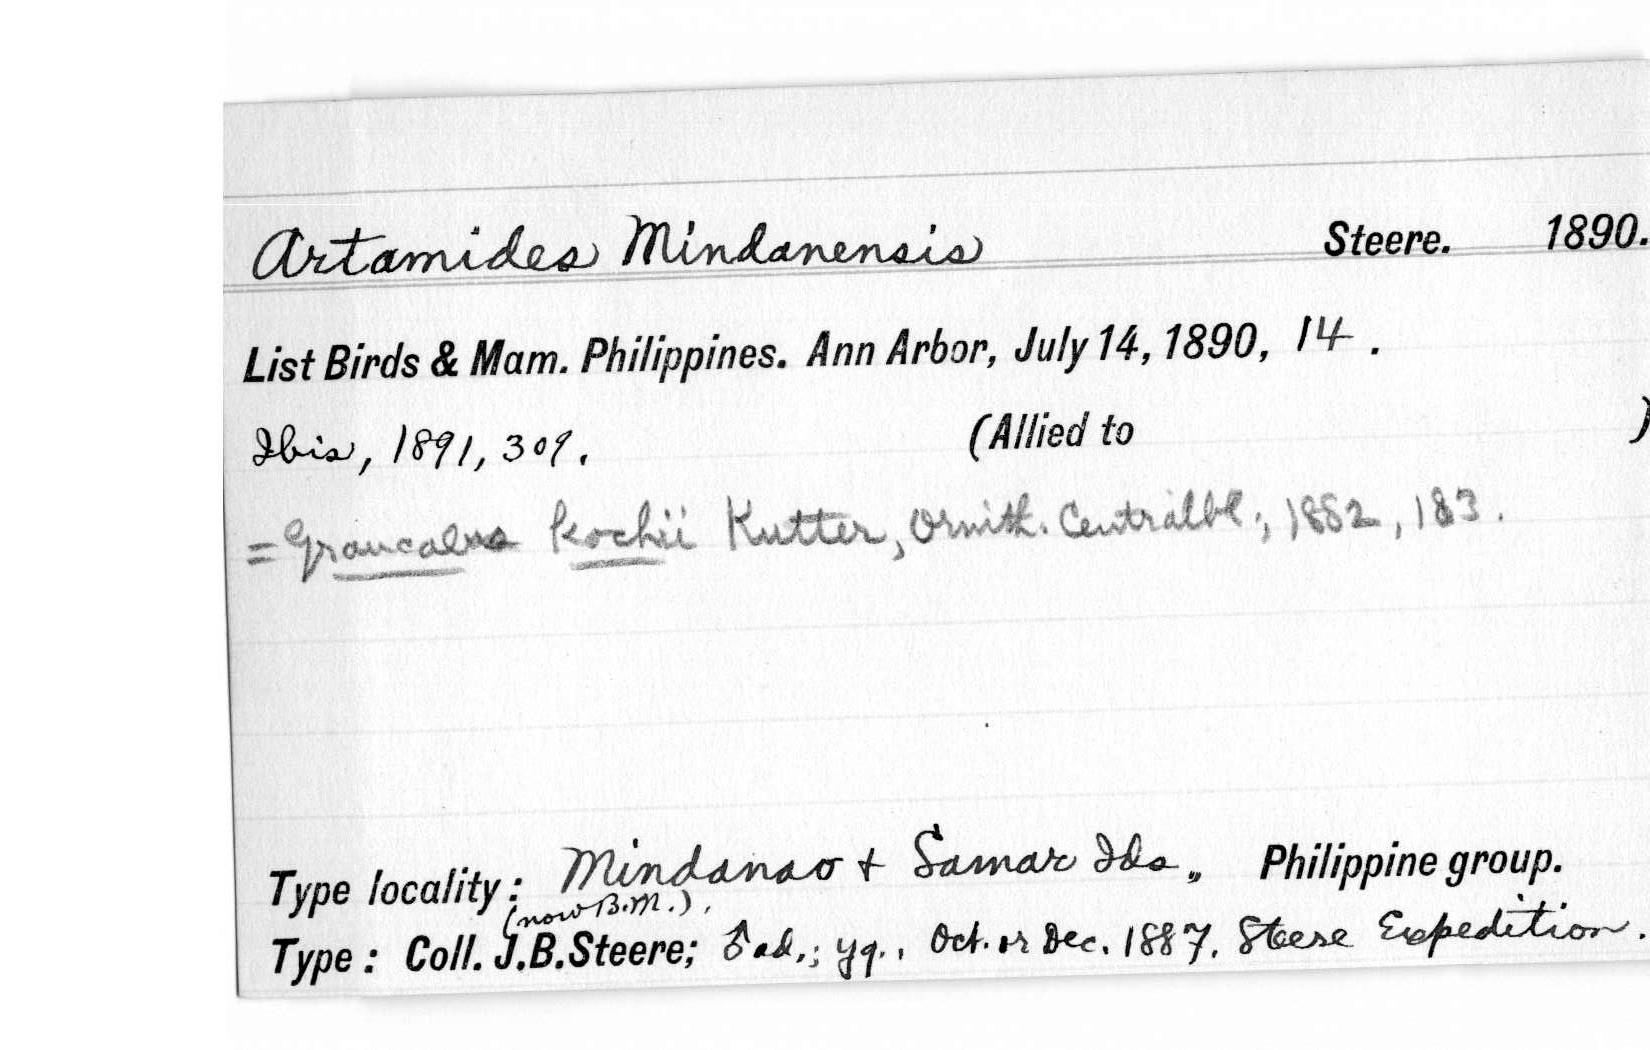 Artamides Mindanensis Steere. 1890.
List Birds & Mam. Philippines. Ann Arbor, July 14, 1890, 14.
Ibis, 1891, 309. (Allied to )
= Graucalus kochii Kutter, Ornith. Centralbl., 1882, 183.
Type locality: Mindanao + Samar Ids., Philippine group.
(now B.M.),
Type: Coll. J.B. Steere; ♂ ad.; yg., Oct. or Dec. 1887. Steere Expedition.